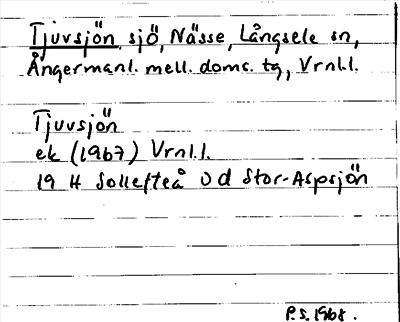 Tjuvsjön, sjö, Nässe, Långsele sn,
Ångermanl. mell. doms. tg, Vrnl.l.
Tjuvsjön
ek (1967) Vrnl.l.
19 H Sollefteå 0d Stor-Aspsjön
P.S. 1968.